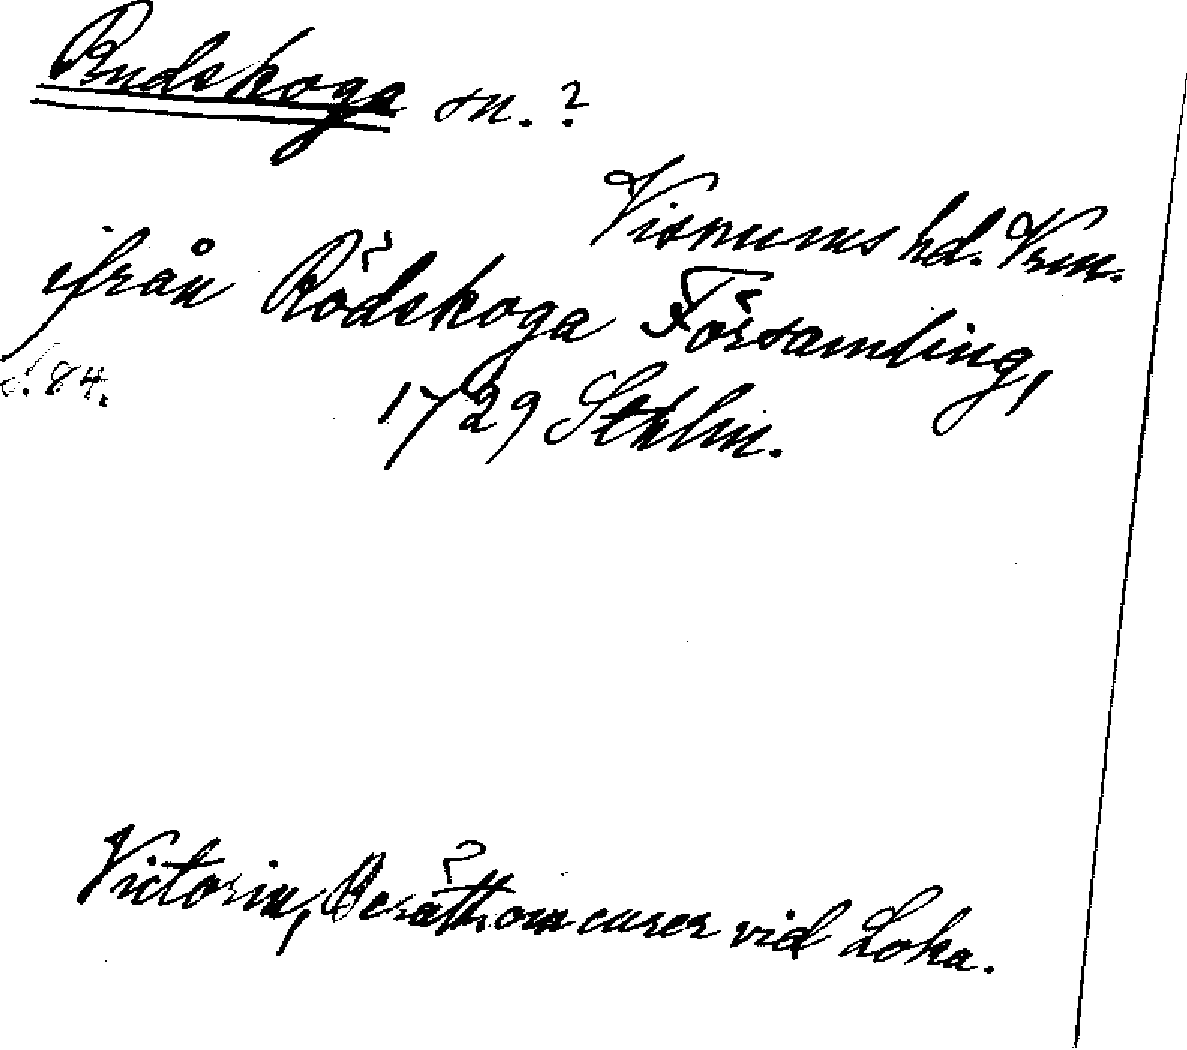 Rudskoga sn.?
Visnums hd. Vrm.
ifrån Rödskoga Församling,
s. 84.
1729 Sthlm.
Victorin, Berätt. om curer vid Loka.